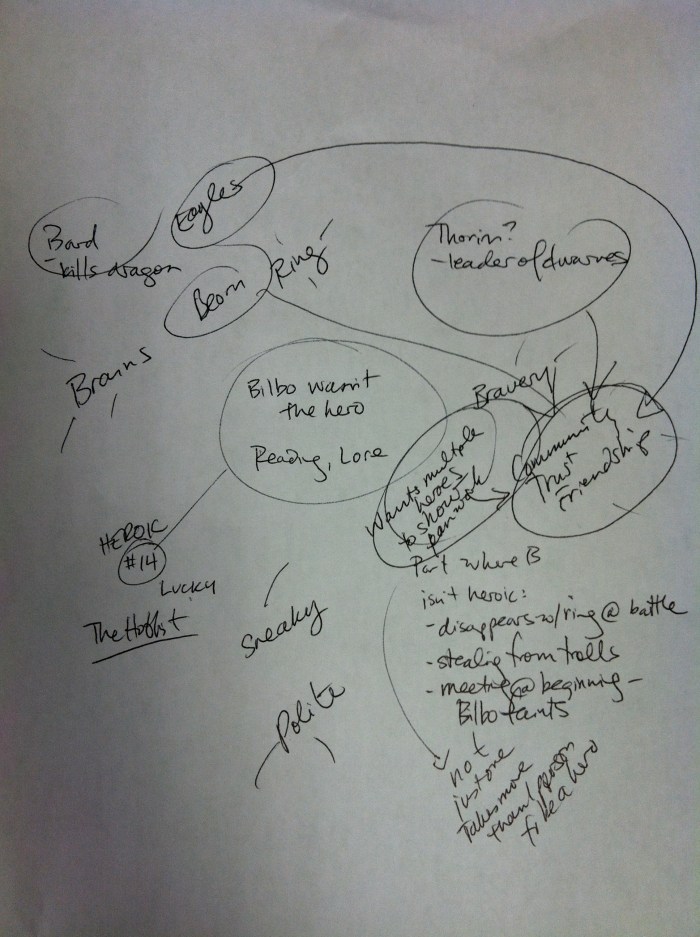 Eagles
Bard
- kills dragon
Beorn
Ring
Thorin?
- leader of dwarves
Brains
Bilbo wasn't
the hero
Reading, Lore
Bravery
Wants multiple
heroes
to show
Community
Trust
Friendship
HEROIC
#14
LUCKY
The Hobbit
Sneaky
Polite
Part where B
isn't heroic:
- disappears w/ ring @ battle
- stealing from trolls
- meeting @ beginning -
Bilbo faints
not
just one
Takes more
than 1 person